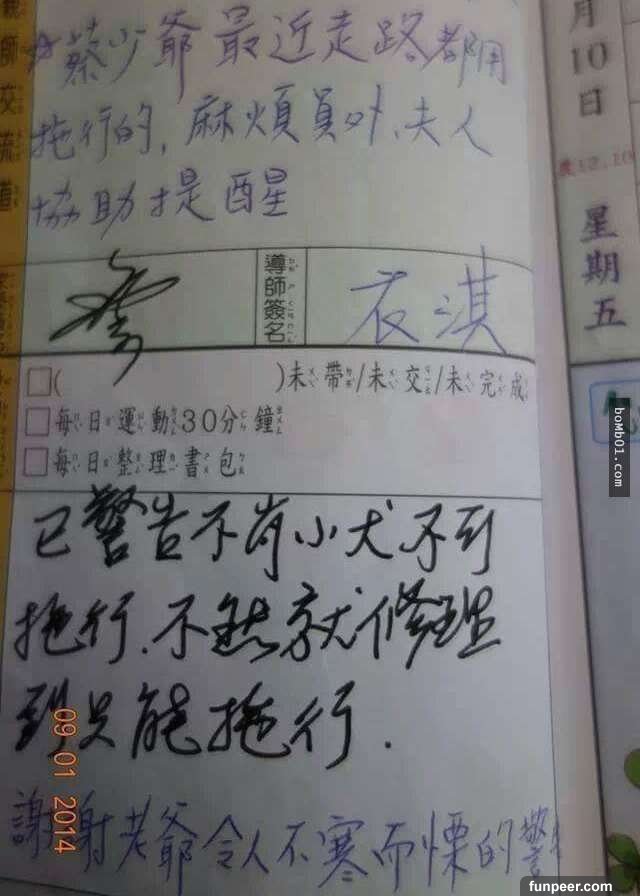 親師交流道
蔡少爺最近走路都用
拖行的,麻煩員外、夫人
協助提醒
導師簽名
衣淇
□( )未帶/未交/未完成
□每日運動30分鐘
□每日整理書包
已警告不肖小犬不可
拖行.不然就修理
到只能拖行.
謝謝老爺令人不寒而慄的警
月10日
農12.10
星期五
09 01 2014
boMb01.com
funpeer.com